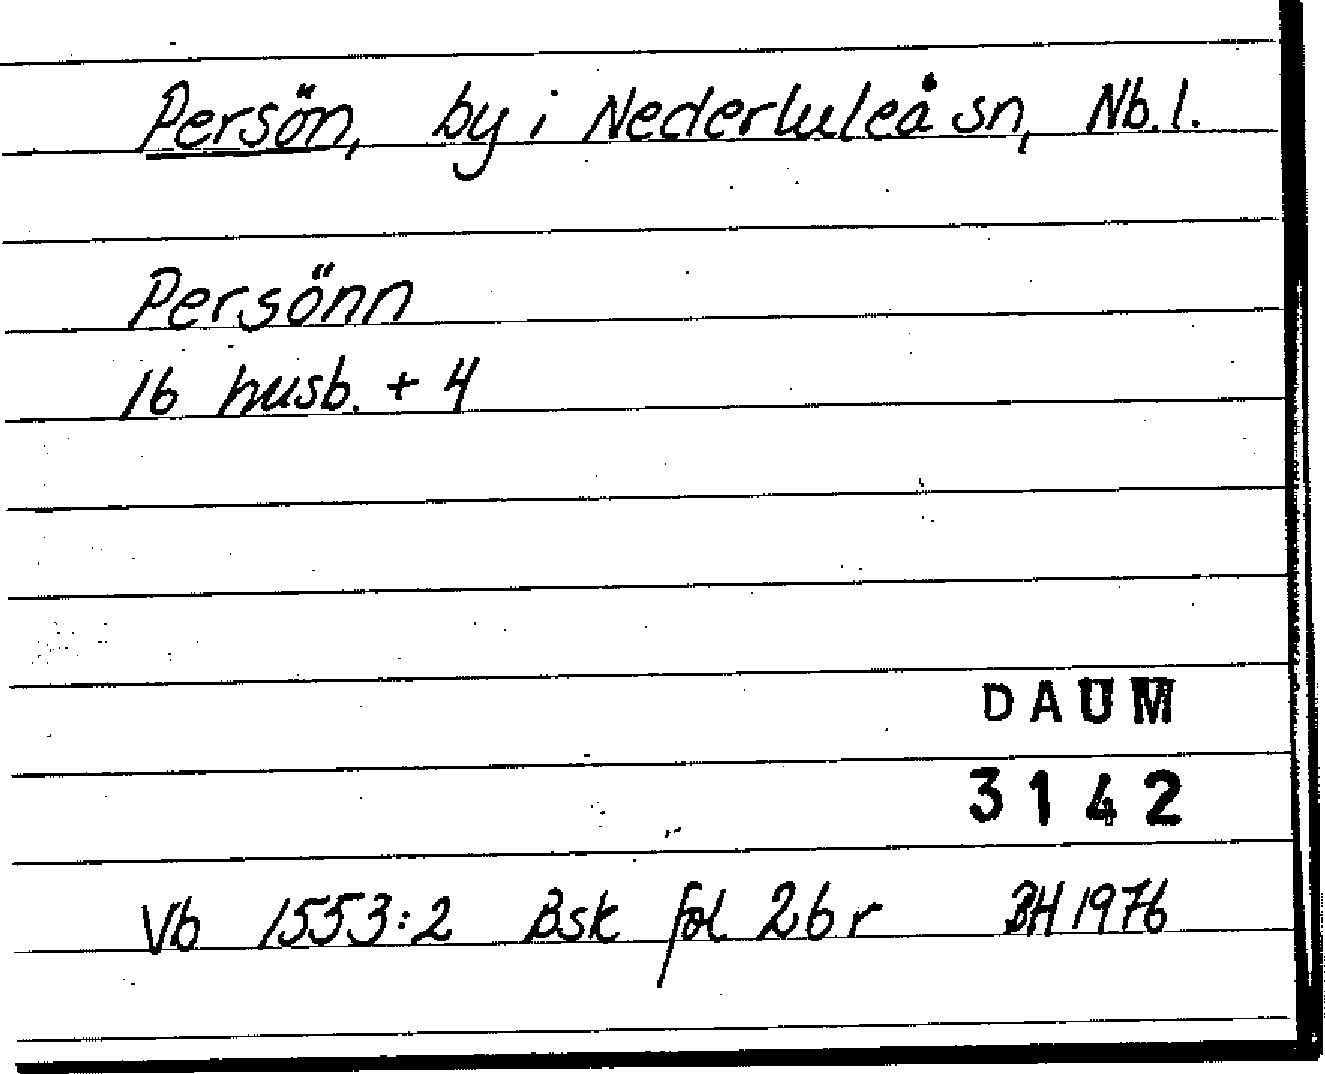 Persön, by i Nederluleå sn, Nb.l.
Persönn
16 husb. + 4
DAUM
3142
Vb 1553:2 Bsk fol 26r BH 1976